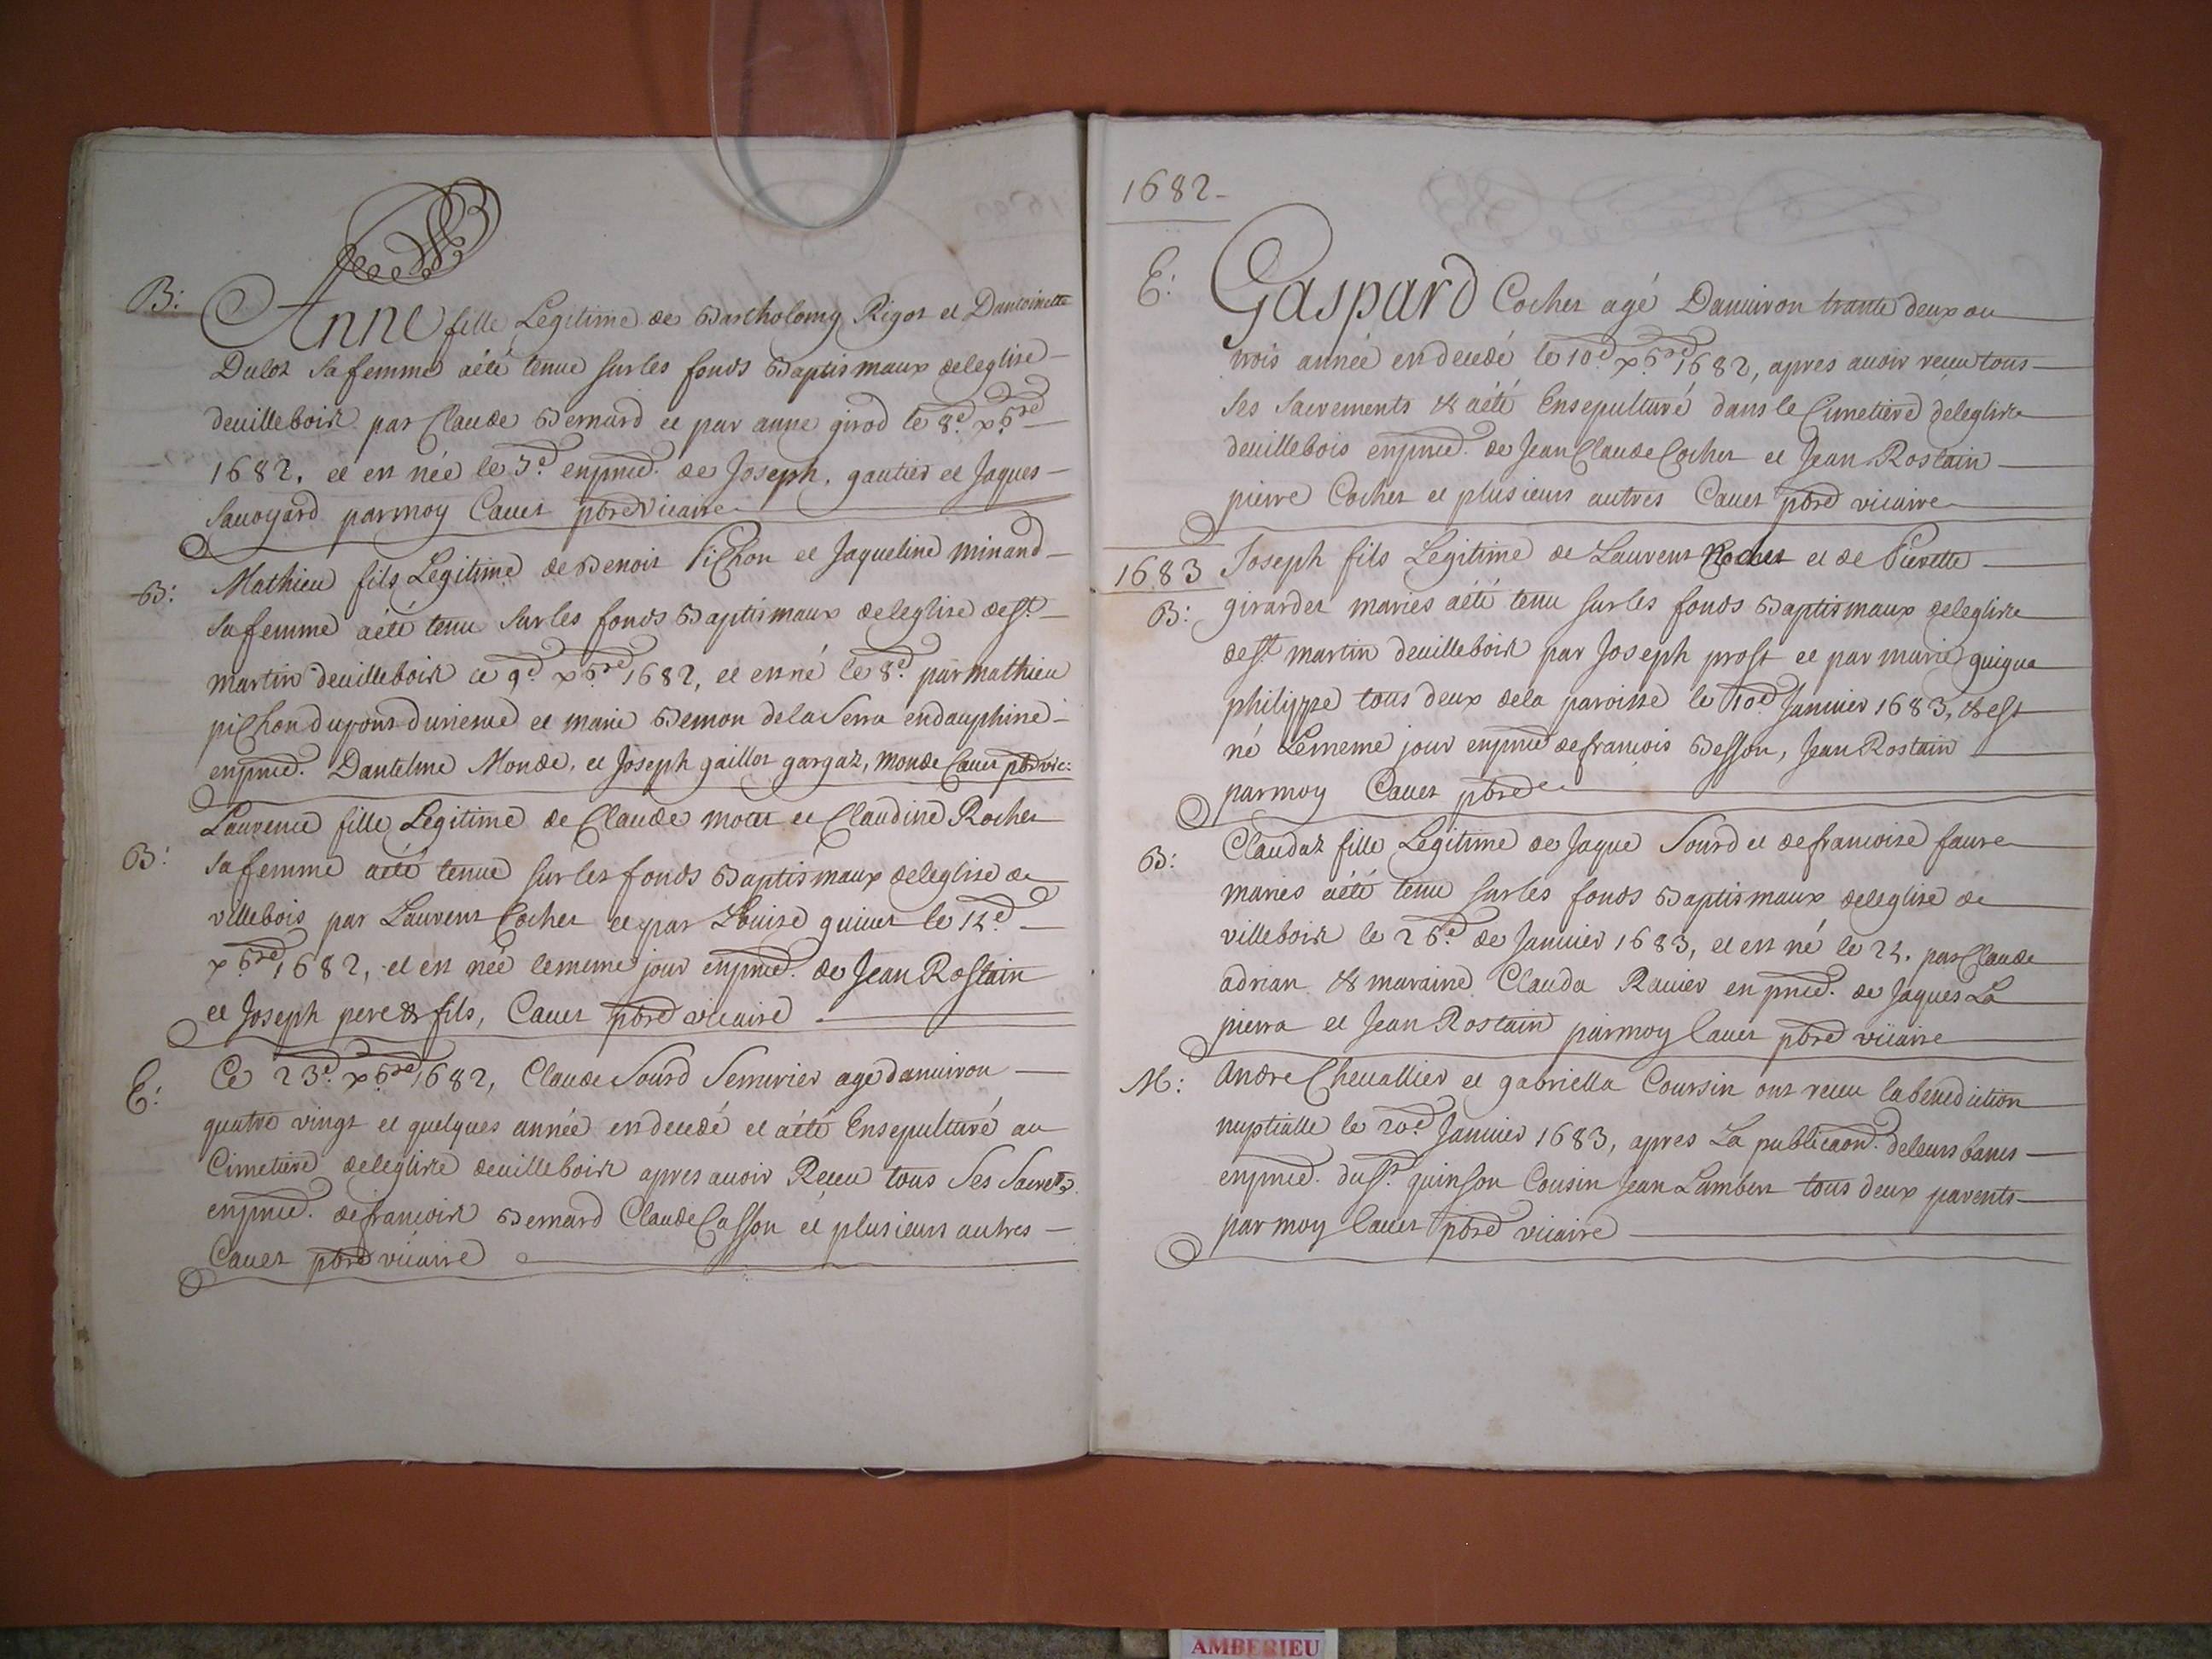 B: Anne fille Legitime de Bartholomy Rigot et Dantoinette
Dulot sa femme aété tenue sur les fonds Baptismaux deleglise
deuillebois par Claude Bernard et par anne girod le 8e xbre
1682, et est née le 5e enpnce de Joseph, gautier et Jaques
Sauoyard parmoy Cauet pbre vicaire
B: Mathieu fils Legitime de Benoit Pichon et Jaqueline minand
sa femme aété tenu sur les fonds Baptismaux deleglise de st
martin deuillebois le 9e xbre 1682, et est né le 8e par mathieu
pichon dupont et marie Bemon dela Serra endauphiné
enpnce Dantelme Monde, et Joseph gaillot gargaz, monde Cauet pbre vic:
Laurence fille Legitime de Claude et Claudine Rochet
B: sa femme aété tenue sur les fonds Baptismaux deleglise de
villebois par Laurent Cochet et par Louise guiuet le 12e
xbre 1682, et est née lememe jour enpnce de Jean Rostain
et Joseph pere & fils, Cauet pbre vicaire
E: Ce 23e xbre 1682, Claude Sourd Serrurier age danuiron
quatre vingt et quelques année est decedé et aété Ensepulturé au
Cimetiere deleglise deuillebois apres auoir Receu tous Ses Sacrets
enpnce defrancois Bernard Claude Casson et plusieurs autres
Cauet pbre vicaire
1682
E: Gaspard Cochet agé Danuiron trante deux ou
trois année est decedé le 10e xbre 1682, apres auoir receu tous
ses Sacrements & aété Ensepulturé dans le Cimetiere deleglise
deuillebois enpnce de Jean Claude Cochet et Jean Rostain
pierre Cochet et plusieurs autres Cauet pbre vicaire
1683 Joseph fils Legitime de Laurent Rochet et de Pierette
B: girardet maries aété tenu sur les fonds Baptismaux deleglise
de st martin deuillebois par Joseph prost et par marie guigue
philippe tous deux dela paroisse le 10e Januier 1683, & est
né Lememe jour enpnce defrancois Besson, Jean Rostain
parmoy Cauet pbre
B: Claudaz fille Legitime de Jaque Sourd et defrancoise faure
maries aété tenue sur les fonds Baptismaux deleglise de
villebois le 26e de Januier 1683, et est né le 24. par Claude
adrian & maraine Clauda Rauier enpnce de Jaques La
pierra et Jean Rostain parmoy Cauet pbre vicaire
M: Andre Cheuallier et gabriella Coursin ont receu la benediction
nuptialle le 20e Januier 1683, apres La publicaon deleurs bancs
enpnce du sr quinson Cousin Jean Lambert tous deux parents
par moy Cauet pbre vicaire
AMBERIEU